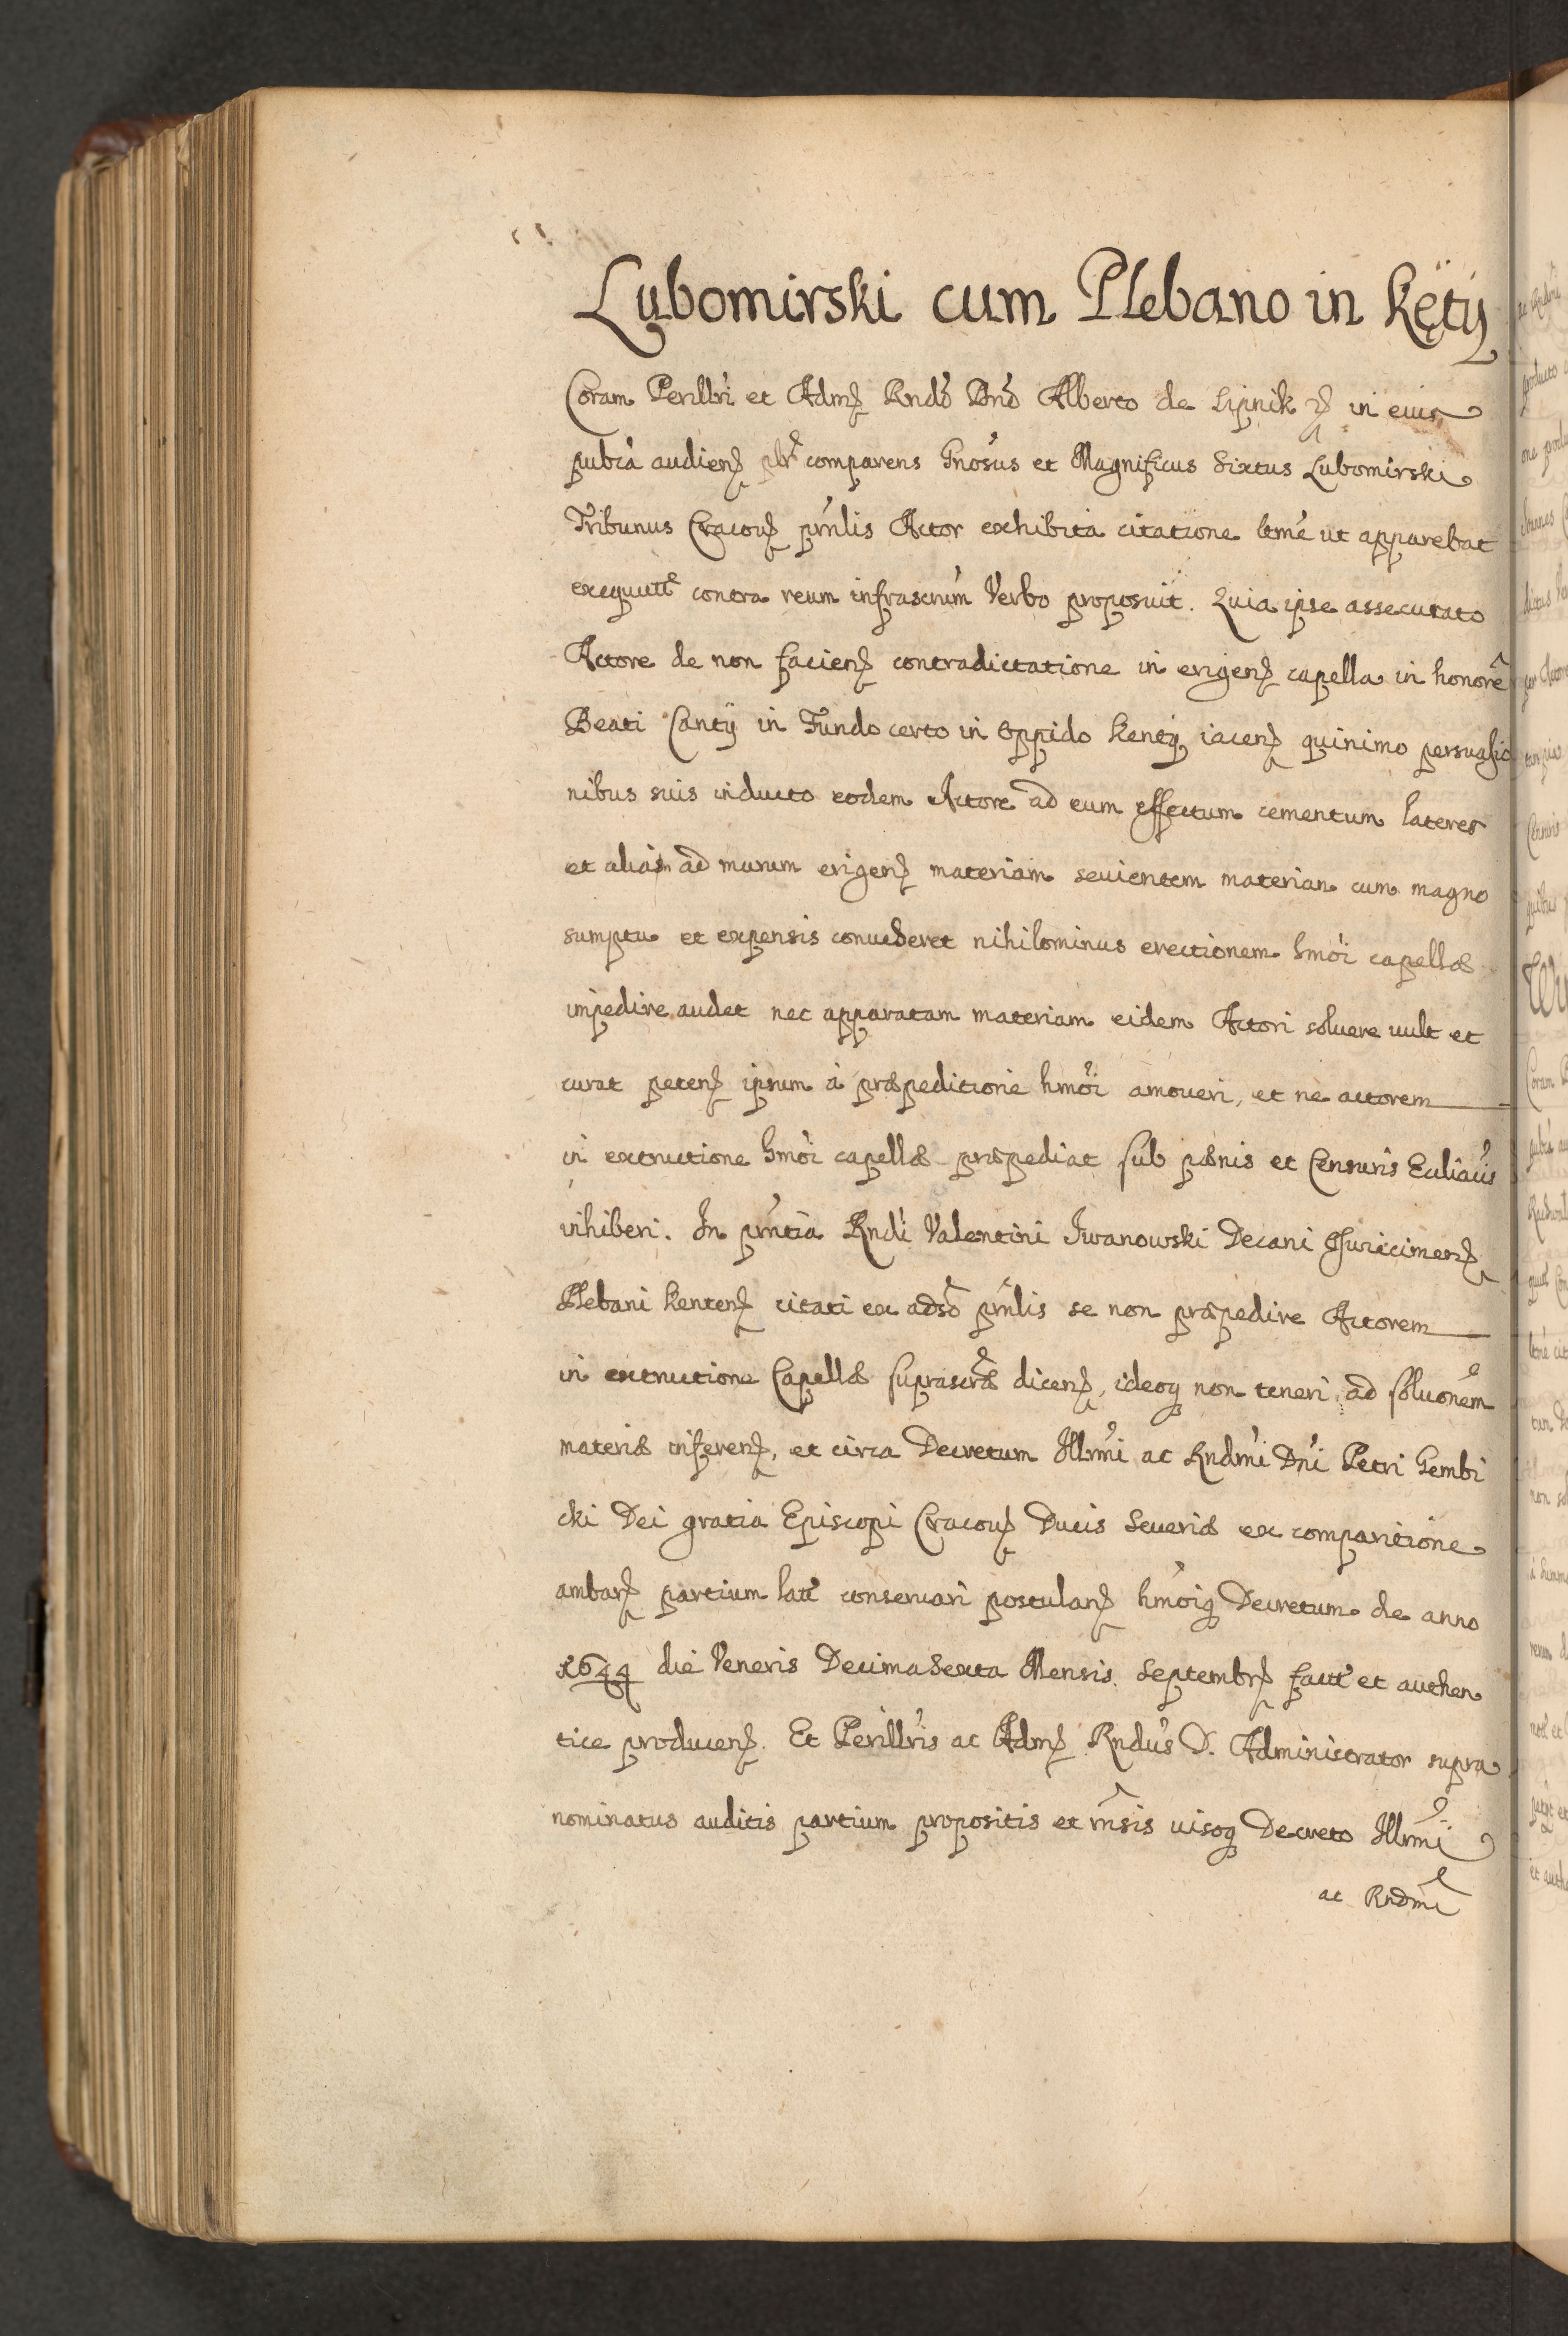 Lubomirski cum Plebano in Kęty
Coram Perillri et Adm Rndo Dno Alberto de Lipnik in eius
pubca audien comparens Gnosus et Magnificus Sixtus Lubomirski
Tribunus Cracou prnlis Actor exhibita citatione ltme ut apparebat
exequutte contra reum infrascrum Verbo proposuit. Quia ipse assecurato
Actore de non facien contradictatione in erigen capella in honore
Beati Cantÿ in Fundo certo in Oppido Kenty iacen quinimo persuasio
nibus suis inducto eodem Actore ad eum effectum cementum lateres
et aliam ad murum erigen materiam seuientem materiam cum magno
sumptu et expensis conueheret nihilominus erectionem hmoi capellæ
impedire audet nec apparatam materiam eidem Actori soluere uult et
curat peten ipsum à præpeditione hmoi amoueri, et ne actorem
in extructione hmoi capellæ præpediat sub pænis et Censuris Ecclicis
inhiberi. In prntia Rndi Valentini Iwanowski Decani
Plebani Kenten citati ex adso prnlis se non præpedire Actorem
in extructione Capellæ suprascræ dicen, ideoq non teneri ad soluonem
materiæ inferen, et circa Decretum Illrmi ac Rndmi Dni Petri Gembi
cki Dei gratia Episcopi Cracou Ducis Seueriæ ex comparitione
ambar partium latt conseruari postulan hmoiq Decretum de anno
1644 die Veneris Decima Sexta Mensis Septembr fact et authen
tice producen. Et Perillris ac Adm Rndus D. Administrator supra
nominatus auditis partium propositis et rnsis uisoq Decreto Illrmi
ac Rndmi